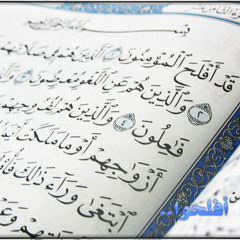 قَدْ أَفْلَحَ الْمُؤْمِنُونَ ١ الَّذِينَ هُمْ فِي صَلَاتِهِمْ
وَالَّذِينَ هُمْ عَنِ اللَّغْوِ مُعْرِضُونَ ٣
فَاعِلُونَ ٤ وَالَّذِينَ هُمْ لِفُرُوجِهِمْ
أَزْوَاجِهِمْ أَوْ مَا مَلَكَتْ
ابْتَغَىٰ وَرَاءَ ذَٰلِكَ
أفلحوا..